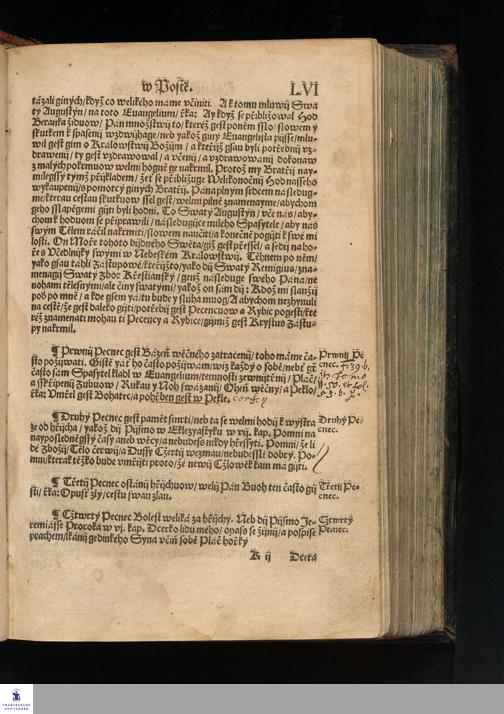 w Postě. LVI
tázali giných/ když co welikého máme včiniti. A k tomu mluwij Swa
tý Augustýn/ na toto Euangelium/ řka: Ay když se přibližowal Hod
Beránka židuow/ Pán množstwij to/ kteréž gest poněm sslo/ slowem y
skutkem k spasenij wzdwihage/ neb yakož giný Euangelista pijsse/ mlu-
wil gest gim o Králowstwij Božijm/ a kteřijž gsau byli potřebnij vz-
drawenij/ ty gest vzdrawowal/ a včenij/ a vzdrawowánij dokonaw
z malých pokrmuow welmi hogně ge nakrmil. Protož my Bratřij nay-
milegssý týmž přijkladem/ žeť se přibližuge Welikonočnij Hod nasseho
wykaupenij/ s pomocý giných Bratřij. Pána plným srdcem následug-
me/ kterau cestau skutkuow ssel gest/ welmi pilně znamenayme/ abychom
geho sslapěgemi gijti byli hodni. To Swatý Augustýn/ včě nás/ aby-
chom k hoduom se připrawili/ následugijce milého Spasytele/ aby nás
swým Tělem ráčil nakrmiti/ slowem naučiti/ a konečně pogijti k swé mi
losti. On Moře tohoto bijdného Swěta/ giž gest přessel/ a sedij na ho-
ře s Včedlnijky swými w Nebeském Králowstwij. Tehnem po něm/
yako gsau táhli Zástupowé/ kteřijžto/ yako dij Swatý Remigius/ zna-
menagij Swatý Zbor Křesťianský/ genž následuge swého Pána/ ne
nohami tělesnými/ ale činy swatými/ yakož on sám dij: Kdož mi slaužij
poď po mně/ a kde gsem yá/ tu bude y sluha muog/ A abychom nezhynuli
na cestě/ že gest daleko gijti/ potřebij gest Pecencuow a Rybic pogesti/ kte
réž znamenati mohau ti Pecency a Rybice/ gijmiž gest Krystus Zástu-
py nakrmil.
¶ Prwnij Pecnec gest Bázeň wěčného zatracenij/ toho máme ča-
sto požijwati. Gistě yáť ho často požijwám/ wiz každý o sobě/ nebť gť
často sám Spasytel kladl w Euangelium/ temnosti zewnijtřnij/ Pláč/
a sskřipenij Zubuow/ Rukau y Noh swázanij/ Oheň wěčný/ a Peklo/
řka: Vmřel gest Bohatec/ a pohřben gest w Pekle.
Prwnij Pe-
cnec.
¶ Druhý Pecnec gest paměť smrti/ neb ta se welmi hodij k wýstra
ze od hřijcha/ yakož dij Pijsmo w Eklezyastyku w vij. kap. Pomni na
nayposledněgssý časy aneb wěcy/ a nebudeš nikdy hřessyti. Pomni/ že li
dé Zbožij/ Tělo čerwij/ a Dussy Čžertij wezmau/ nebudessli dobrý. Po-
mni/ kterak těžko bude vmřijti proto/ že newij Čzlowěk kam má gijti.
Druhý Pe-
cnec.
¶ Třetij Pecnec ostánij hřijchuow/ welij Pán Buoh ten často gij
sti/ řka: Opusť zlý/ cestu swau zlau.
Třetij Pe-
cnec.
¶ Čžtwrtý Pecnec Bolest weliká za hřijchy. Neb dij Pijsmo Je-
remiásse Proroka w vj. kap. Dcerko lidu mého/ opaš se žijnij/ a pospise
prachem/ lkánij gedinkého Syna včiň sobě Pláč hořký
Čžtwrtý
Pecnec.
K ij Dcera